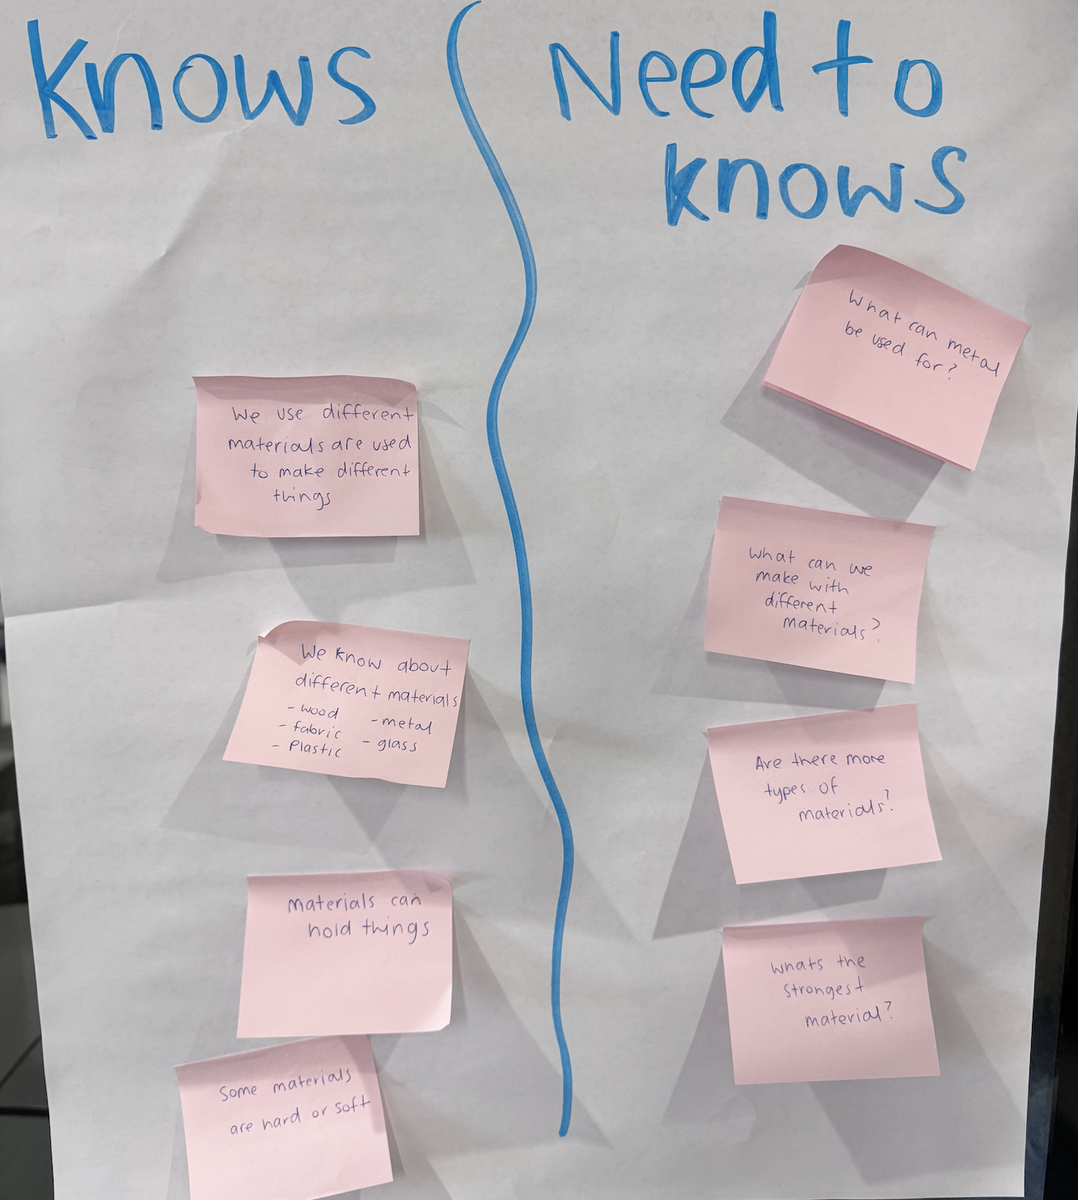 Knows
We use different
materials are used
to make different
things
We know about
different materials
- wood - metal
- fabric - glass
- Plastic
materials can
hold things
Some materials
are hard or soft
Need to
knows
What can metal
be used for?
What can we
make with
different
materials?
Are there more
types of
materials?
Whats the
strongest
material?